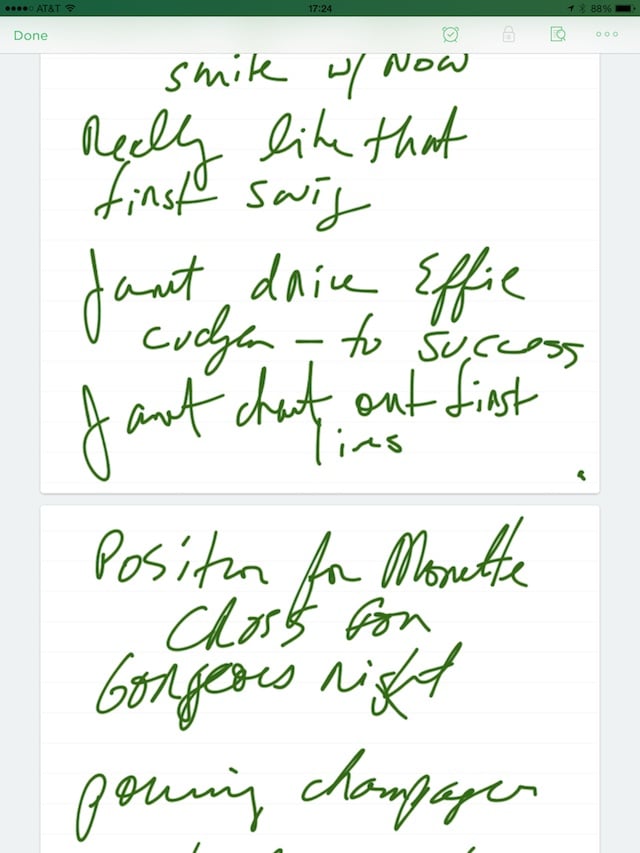 AT&T 17:24 88%
Done
smile w/ Now
Really like that
first swig
Janet drive Effie
cudgen - to success
Janet chart out first
lines
Position for Monette
Cross for
Gorgeous night
pouring champagne